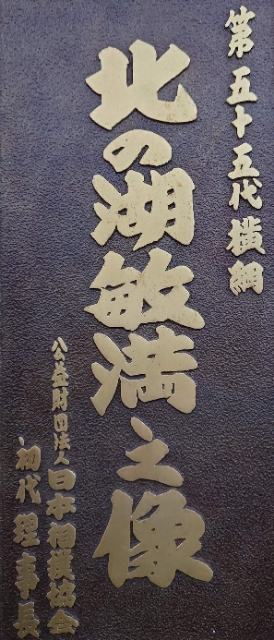 第五十五代横綱
北の湖敏満之像
公益財団法人日本相撲協会
初代理事長